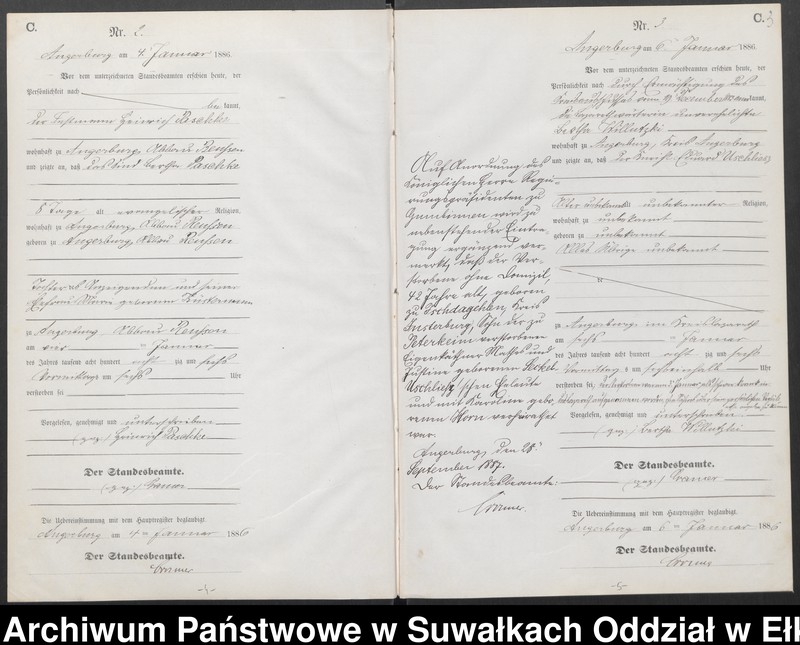 C.
Nr. 2.
Angerburg am 4. Januar 1886.
Vor dem unterzeichneten Standesbeamten erschien heute, der
Persönlichkeit nach
bekannt,
der Heinrich Paschke
wohnhaft zu Angerburg,
und zeigte an, daß das Kind Bertha Paschke
8 Tage alt evangelischer Religion,
wohnhaft zu Angerburg,
geboren zu Angerburg,
Tochter des Anzeigenden und seiner
Ehefrau Marie geborenen
zu Angerburg
am vier Januar
des Jahres tausend acht hundert acht zig und sechs
Vormittags um sechs Uhr
verstorben sei
Vorgelesen, genehmigt und unterschrieben
(gez.) Heinrich Paschke
Der Standesbeamte.
(gez.) Cramer
Die Uebereinstimmung mit dem Hauptregister beglaubigt.
Angerburg am 4ten Januar 1886
Der Standesbeamte.
Cramer
-4-
C. 3
Nr. 3.
Angerburg am 6. Januar 1886.
Vor dem unterzeichneten Standesbeamten erschien heute, der
Persönlichkeit nach durch Ermächtigung des
vom 19 Dezember bekannt,
die unverehelichte
Bertha Willutzki
wohnhaft zu Angerburg, Kreis Angerburg
und zeigte an, daß der Knecht Eduard Uschliess
Alter unbekannt unbekannter Religion,
wohnhaft zu unbekannt
geboren zu unbekannt
Alles Übrige unbekannt
zu Angerburg im Kreislazareth
am sechs ten Januar
des Jahres tausend acht hundert acht zig und sechs
Vormittags um Uhr
verstorben sei,
Vorgelesen, genehmigt und unterschrieben
(gez.) Bertha Willutzki
Der Standesbeamte.
(gez.) Cramer
Die Uebereinstimmung mit dem Hauptregister beglaubigt.
Angerburg am 6ten Januar 1886
Der Standesbeamte.
Cramer
-5-
Auf Anordnung des
Königlichen Herrn Regie-
rungspräsidenten zu
Gumbinnen wird zu
nebenstehender Eintra-
gung ergänzend ver-
merkt, daß der Ver-
storbene ohne Domizil,
42 Jahre alt, geboren
zu Tschdagehlen, Kreis
Insterburg, Sohn der zu
Peterkeim verstorbenen
Eigenkäthner und
Justine geborener
Uschliess'schen Eheleute
und mit Karoline gebo-
renen Horn verheirathet
war.
Angerburg, den 28.
September 1887.
Der Standesbeamte:
Cramer.
Archiwum Państwowe w Suwałkach Oddział w Ełk